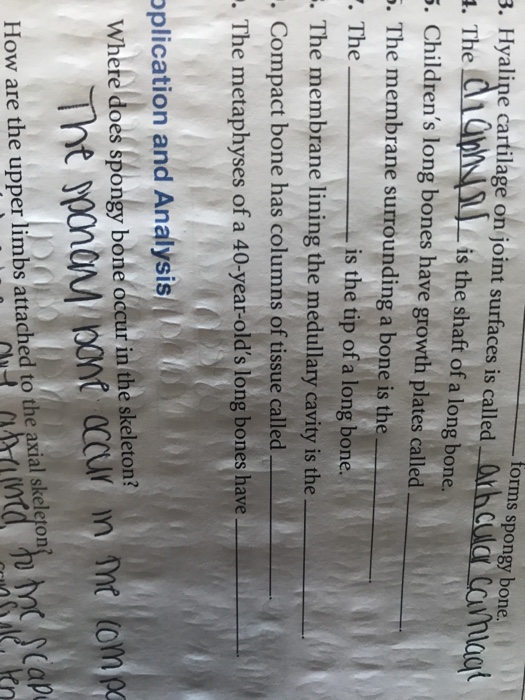 forms spongy bone.
3. Hyaline cartilage on joint surfaces is called articular
4. The diaphysis is the shaft of a long bone.
5. Children's long bones have growth plates called
The membrane surrounding a bone is the
The is the tip of a long bone.
The membrane lining the medullary cavity is the
Compact bone has columns of tissue called
The metaphyses of a 40-year-old's long bones have
pplication and Analysis
Where does spongy bone occur in the skeleton?
The bone occur in the comp
How are the upper limbs attached to the axial skeleton?
to the scap